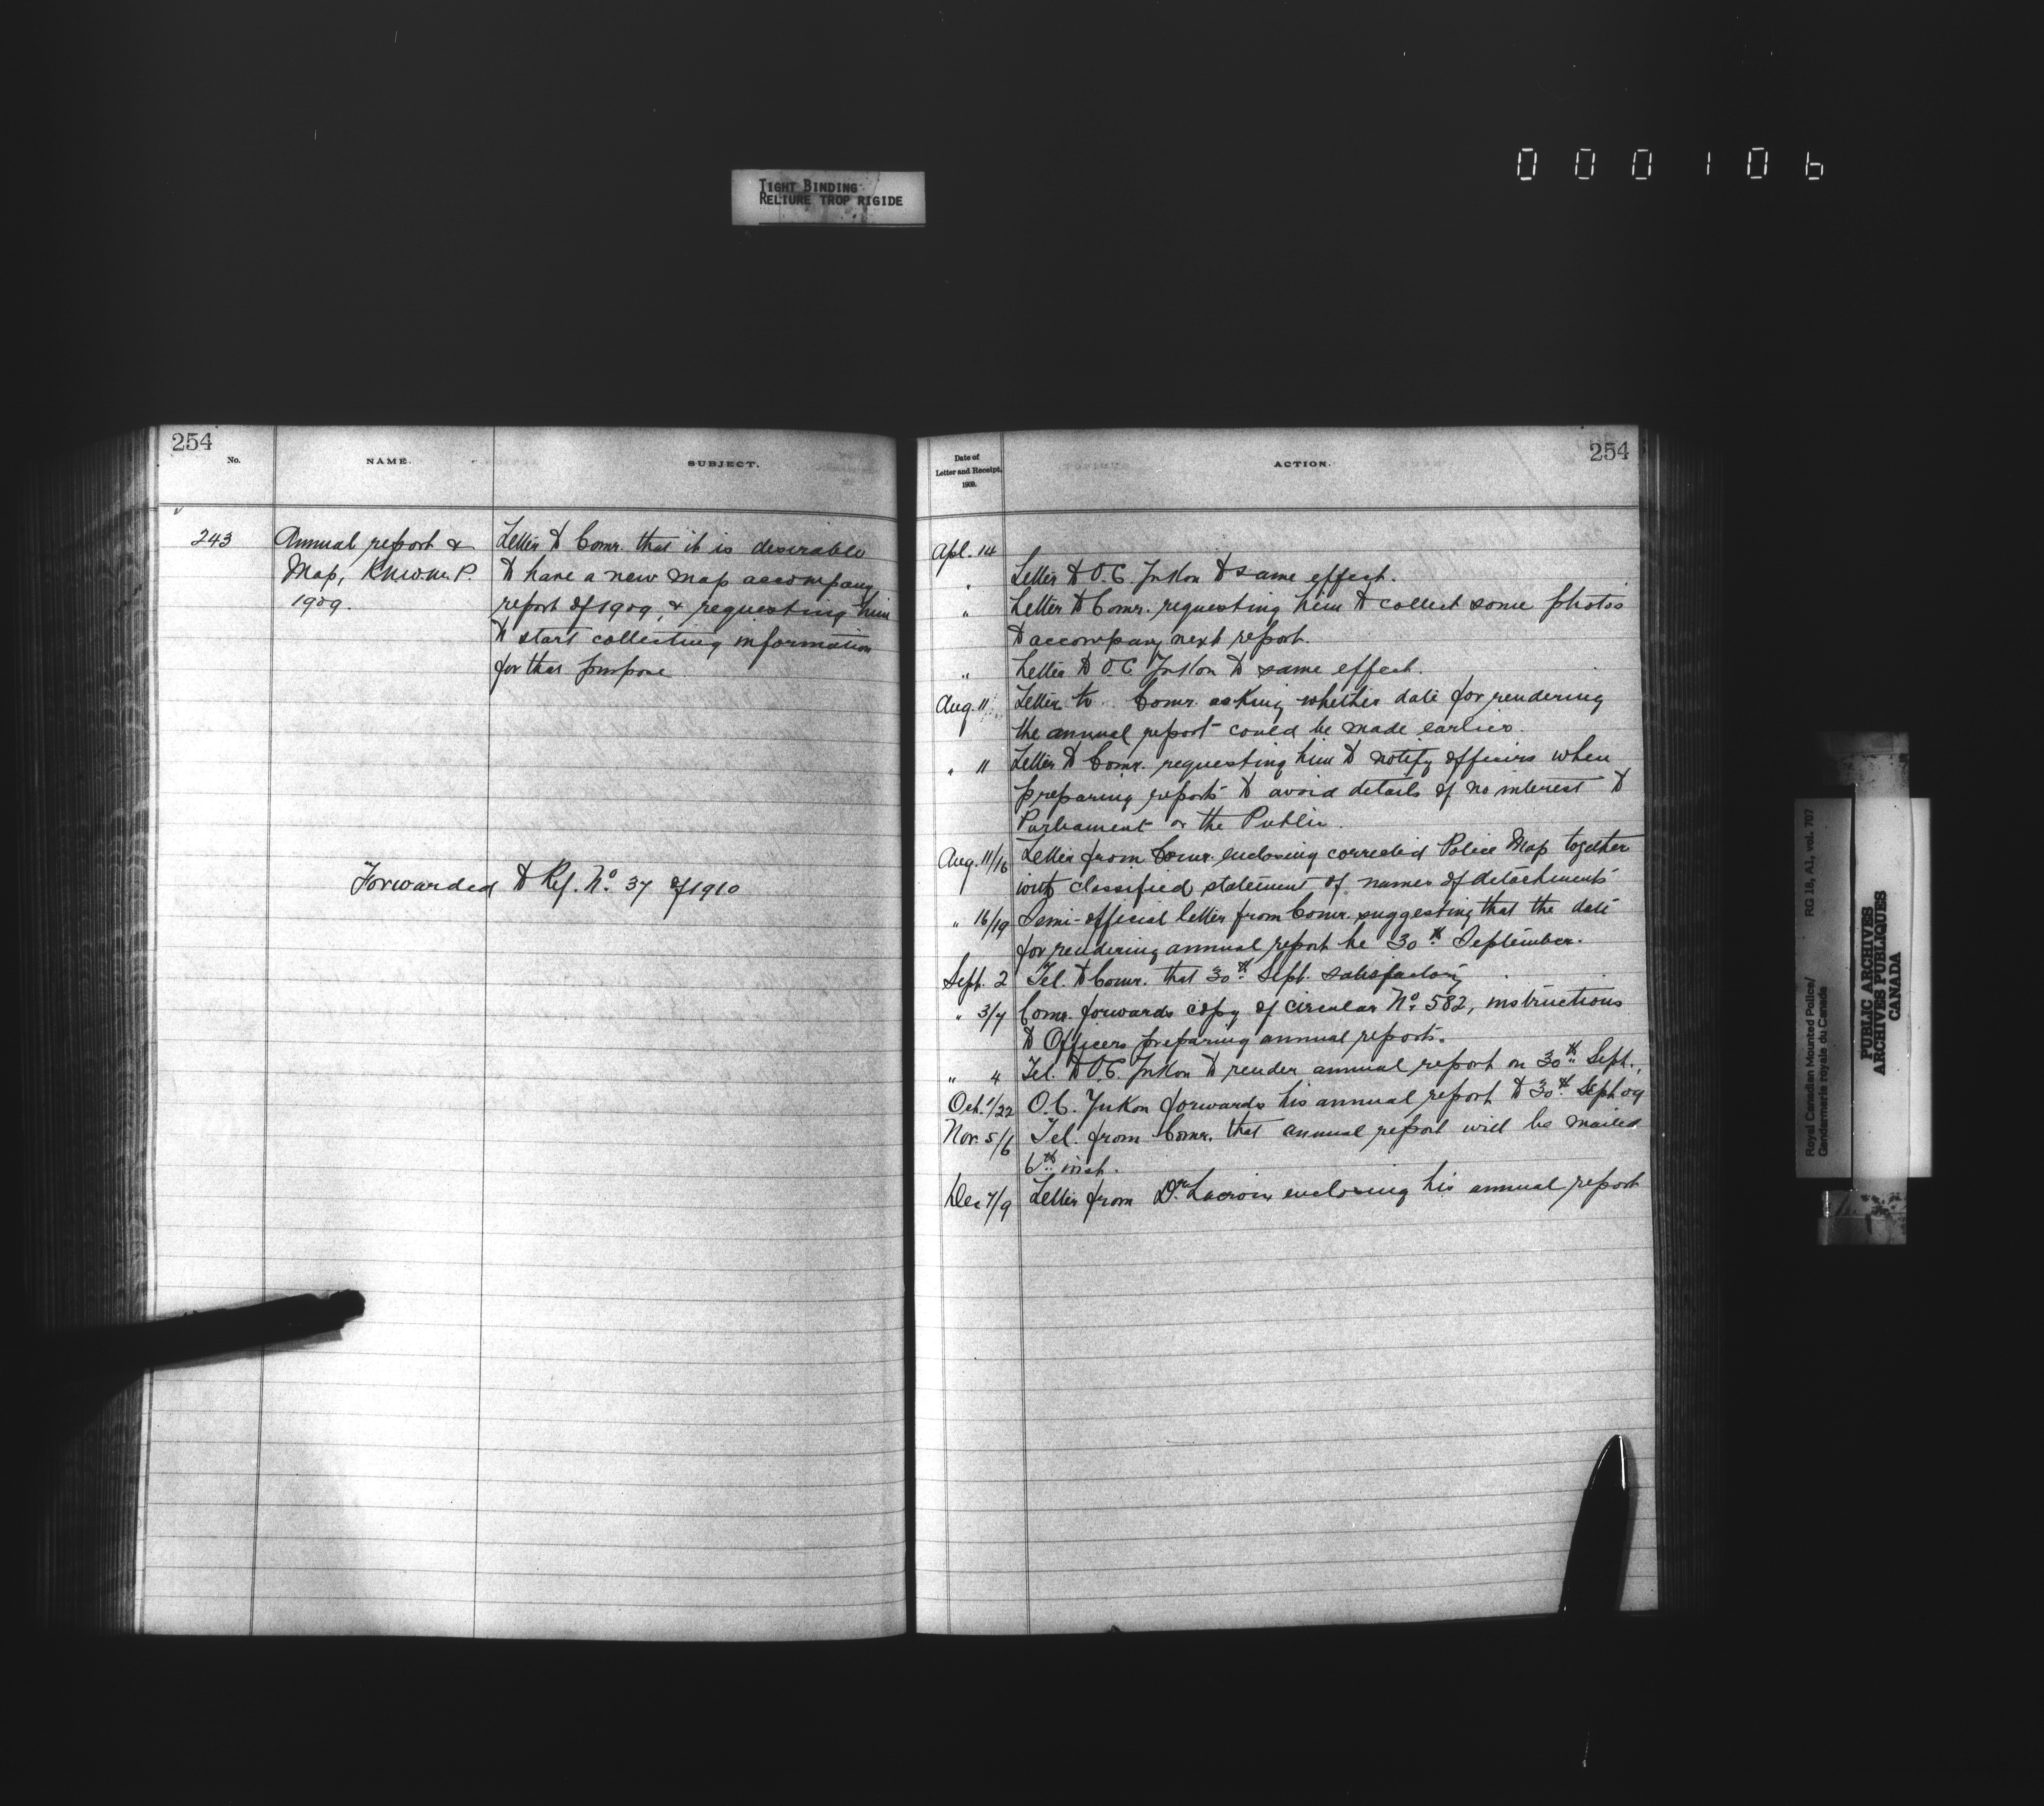 000106
TIGHT BINDING
RELIURE TROP RIGIDE
254
No.
NAME.
SUBJECT.
243
Annual report &
Map, R.N.W.M.P.
1909.
Letter to Comr. that it is desirable
to have a new map accompany
report of 1909, & requesting him
to start collecting information
for that purpose
Forwarded to Ref. No. 37 of 1910
Date of
Letter and Receipt,
1909.
ACTION.
254
Apl. 14
" Letter to O.C. Yukon to same effect.
" Letter to Comr. requesting him to collect some photos
to accompany next report.
" Letter to O.C. Yukon to same effect.
Aug. 11 Letter to Comr. asking whether date for rendering
the annual report could be made earlier.
" 11 Letter to Comr. requesting him to notify officers when
preparing reports to avoid details of no interest to
Parliament or the Public.
Aug. 11/16 Letter from Comr. enclosing corrected Police Map together
with classified statement of names of detachments
" 16/19 Semi-official letter from Comr. suggesting that the date
for rendering annual report be 30th September.
Sept. 2 Tel. to Comr. that 30th Sept. satisfactory
" 3/7 Comr. forwards copy of circular No. 582, instructions
to Officers preparing annual reports.
" 4 Tel. to O.C. Yukon to render annual report on 30th Sept.
Oct. 1/22 O.C. Yukon forwards his annual report to 30th Sept 09
Nov. 5/6 Tel. from Comr. that annual report will be mailed
6th inst.
Dec 7/9 Letter from Dr. Lacroix enclosing his annual report
Royal Canadian Mounted Police/
Gendarmerie royale du Canada
RG 18, A1, vol. 707
PUBLIC ARCHIVES
ARCHIVES PUBLIQUES
CANADA